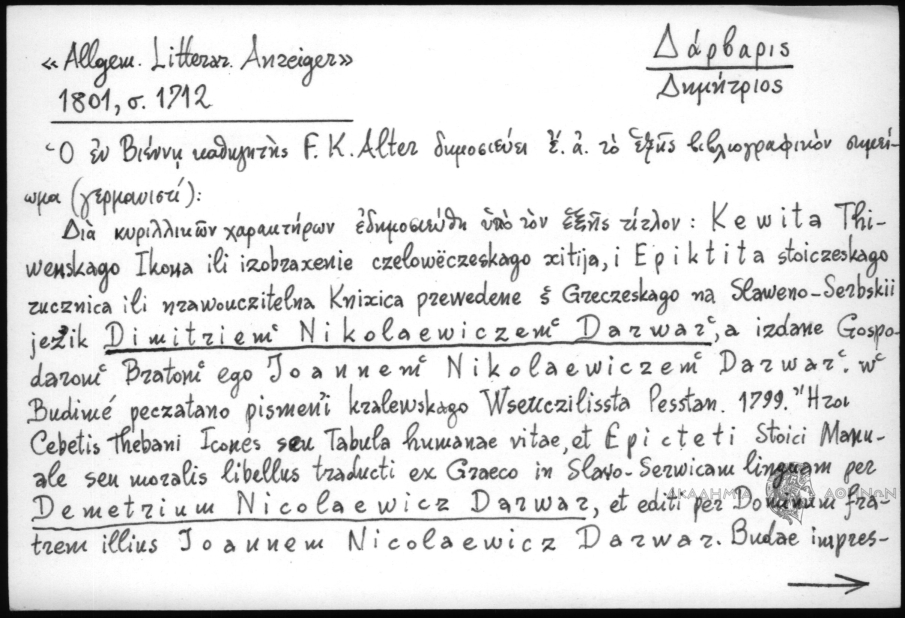 «Allgem. Litterar. Anzeiger»
1801, σ. 1712
Δάρβαρις
Δημήτριος
Ὁ ἐν Βιέννῃ καθηγητὴς F. K. Alter δημοσιεύει ἔ. ἀ. τὸ ἑξῆς βιβλιογραφικὸν σημεί-
ωμα (γερμανιστί):
Διὰ κυριλλικῶν χαρακτήρων ἐδημοσιεύθη ὑπὸ τὸν ἑξῆς τίτλον: Kewita Thi-
wenskago Ikona ili izobraxenie czelowëczeskago xitija, i Epiktita stoiczeskago
rucznica ili nrawouczitelna Knixica prewedene š Greczeskago na Slaweno-Serbskii
jezik Dimitriemc Nikolaewiczemc Darwarc, a izdane Gospo-
daromc Bratomc ego Joannemc Nikolaewiczemc Darwarc. wc
Budimé peczatano pismeni kralewskago Wseuczilissta Pesstan. 1799. "Ητοι
Cebetis Thebani Icones seu Tabula humanae vitae, et Epicteti Stoici Manu-
ale seu moralis libellus traducti ex Graeco in Slavo-Serwicam linguam per
Demetrium Nicolaewicz Darwar, et editi per Dominum fra-
trem illius Joannem Nicolaewicz Darwar. Budae impres-
ΑΚΑΔΗΜΙΑ ΑΘΗΝΩΝ